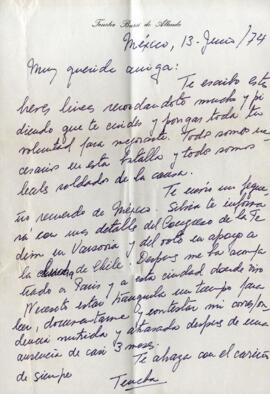 Tencha Bussi de Allende
México, 13-Junio/74
Muy querida amiga:
Te escribo estas
breves líneas recordándote mucho y pi
diendo que te cuides y pongas toda tu
voluntad para mejorarte. Todo somos ne
cesarios en esta batalla y todo somos
leales soldados de la causa.
Te envío un peque
ño recuerdo de México. Silvia te informa
rá con más detalle del Congreso de la Fe
dim en Varsovia y del voto en apoyo a
la de Chile. Después me ha acompa
ñado a París y a esta ciudad donde
Necesito estar tranquila un tiempo para
leer, documentarme y contestar mi correspon
dencia nutrida y atrasada después de una
ausencia de casi 3 meses.
Te abraza con el cariño
de siempre
Tencha